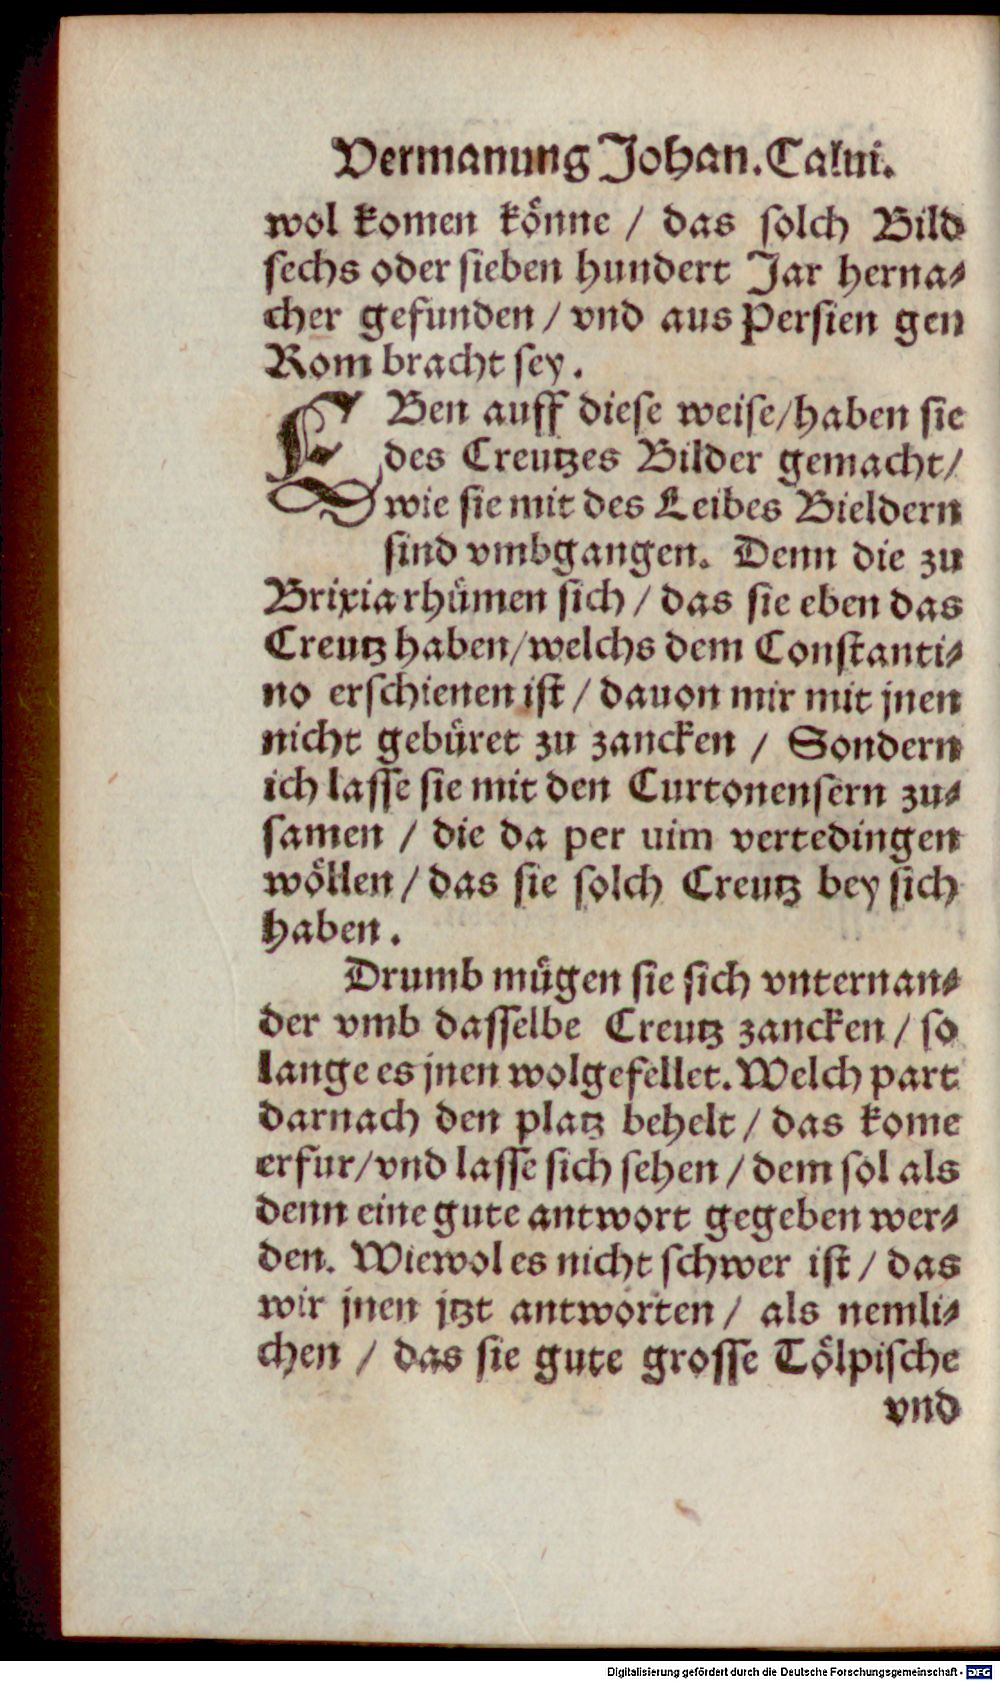 Vermanung Johan. Calui.
wol komen könne / das solch Bild
sechs oder sieben hundert Jar herna⸗
cher gefunden / vnd aus Persien gen
Rom bracht sey.
EBen auff diese weise / haben sie
des Creutzes Bilder gemacht /
wie sie mit des Leibes Bieldern
sind vmbgangen. Denn die zu
Brixia rhümen sich / das sie eben das
Creutz haben / welchs dem Constanti⸗
no erschienen ist / dauon mir mit jnen
nicht gebüret zu zancken / Sondern
ich lasse sie mit den Curtonensern zu⸗
samen / die da per uim vertedingen
wöllen / das sie solch Creutz bey sich
haben.
Drumb mügen sie sich vnternan⸗
der vmb dasselbe Creutz zancken / so
lange es jnen wolgefellet. Welch part
darnach den platz behelt / das kome
erfur / vnd lasse sich sehen / dem sol als
denn eine gute antwort gegeben wer⸗
den. Wiewol es nicht schwer ist / das
wir jnen jtzt antworten / als nemli⸗
chen / das sie gute grosse Tölpische
vnd
Digitalisierung gefördert durch die Deutsche Forschungsgemeinschaft - DFG